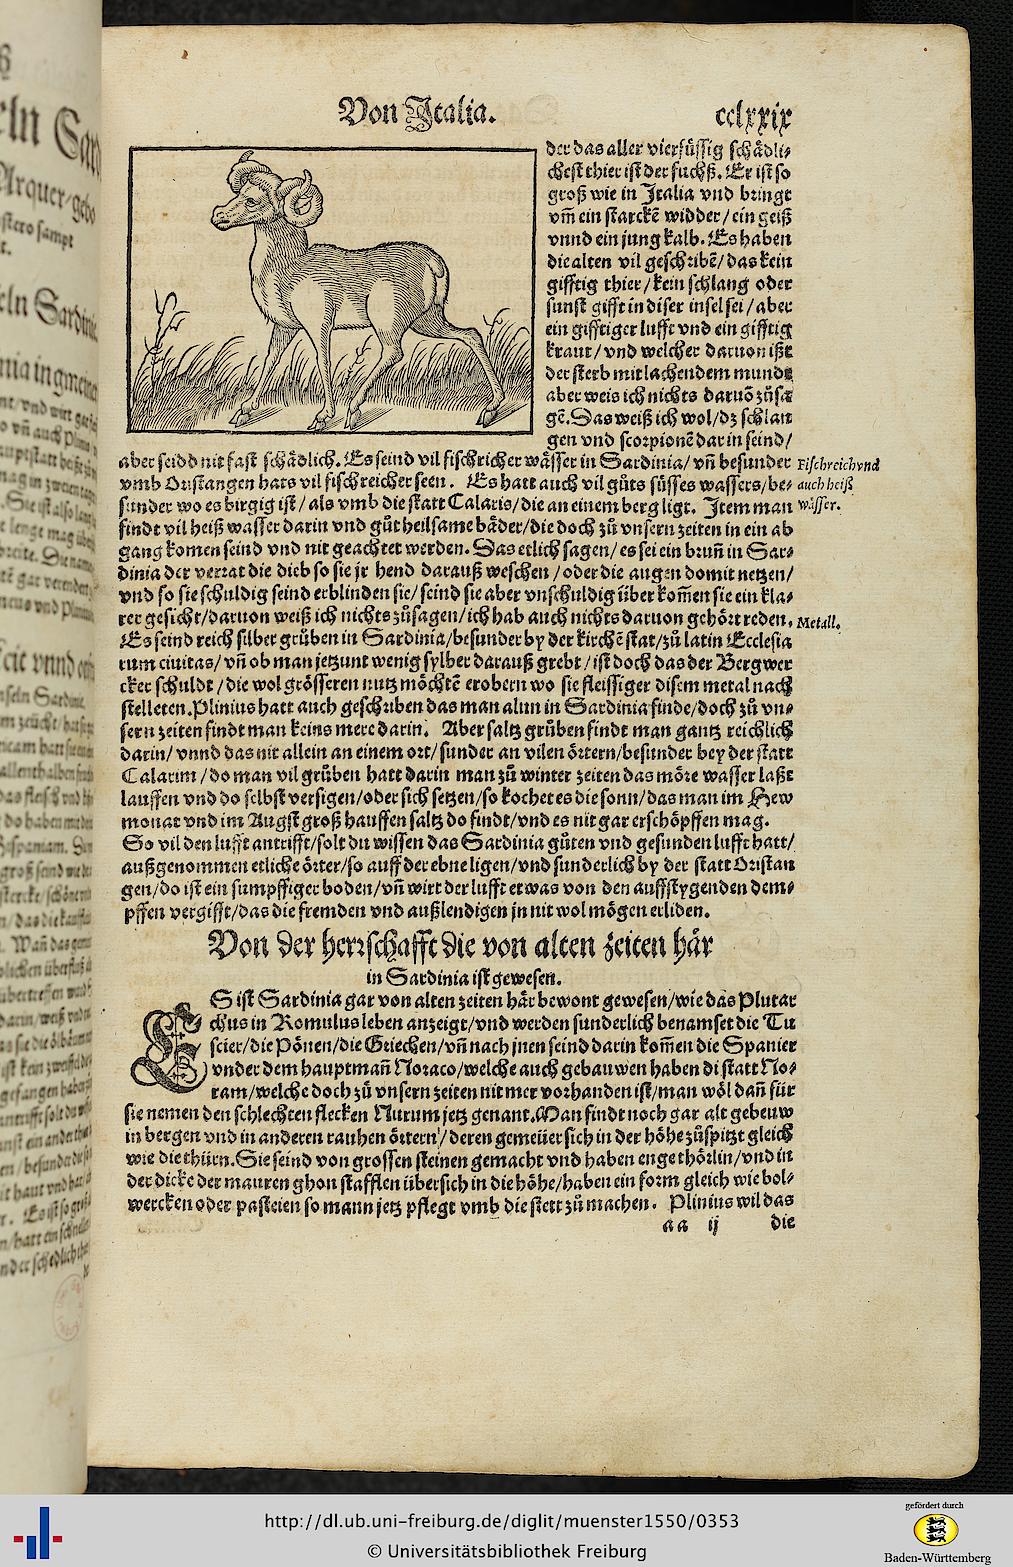 Von Italia.
cclxxix
der das aller vierfüssig schädli-
chest thier ist der fuchß. Er ist so
groß wie in Italia vnd bringt
vm̃ ein starckẽ widder / ein geiß
vnnd ein jung kalb. Es haben
die alten vil geschribẽ / das kein
gifftig thier / kein schlang oder
sunst gifft in diser insel sei / aber
ein gifftiger lufft vnd ein gifftig
kraut / vnd welcher daruon ißt
der sterb mit lachendem mund
aber weis ich nichts daruõ zů sa
gẽ. Das weiß ich wol / dz schlan
gen vnd scorpionẽ dar in seind /
aber seind nit fast schädlich. Es seind vil fischricher wässer in Sardinia / vñ besunder
vmb Oristangen hats vil fischreicher seen. Es hatt auch vil gůts süsses wassers / be-
sunder wo es birgig ist / als vmb die statt Calaris / die an einem berg ligt. Item man
findt vil heiß wasser darin vnd gůt heilsame bäder / die doch zů vnsern zeiten in ein ab
gang komen seind vnd nit geachtet werden. Das etlich sagen / es sei ein brun̄ in Sar-
dinia der verrat die dieb so sie jr hend darauß weschen / oder die augen domit netzen /
vnd so sie schuldig seind erblinden sie / seind sie aber vnschuldig überkom̃en sie ein kla-
rer gesicht / daruon weiß ich nichts zůsagen / ich hab auch nichts daruon gehört reden.
Es seind reich silber grůben in Sardinia / besunder by der kirchẽ stat / zů latin Ecclesia
rum ciuitas / vñ ob man jetzunt wenig sylber darauß grebt / ist doch das der Bergwer
cker schuldt / die wol grösseren nutz möchtẽ erobern wo sie fleissiger disem metal nach
stelleten. Plinius hatt auch geschriben das man alun in Sardinia finde / doch zů vn-
sern zeiten findt man keins mere darin. Aber saltz grůben findt man gantz reichlich
darin / vnnd das nit allein an einem ort / sunder an vilen örtern / besunder bey der statt
Calarim / do man vil grůben hatt darin man zů winter zeiten das möre wasser laßt
lauffen vnd do selbst versigen / oder sich setzen / so kochet es die sonn / das man im Hew
monat vnd im Augst groß hauffen saltz do findt / vnd es nit gar erschöpffen mag.
So vil den lufft antrifft / solt du wissen das Sardinia gůten vnd gesunden lufft hatt /
außgenommen etliche örter / so auff der ebne ligen / vnd sunderlich by der statt Oristan
gen / do ist ein sumpffiger boden / vñ wirt der lufft etwas von den auffstygenden dem-
pffen vergifft / das die fremden vnd außlendigen jn nit wol mögen erliden.
Fischreich vnd
auch heiß
wässer.
Metall.
Von der herrschafft die von alten zeiten här
in Sardinia ist gewesen.
ES ist Sardinia gar von alten zeiten här bewont gewesen / wie das Plutar
chus in Romulus leben anzeigt / vnd werden sunderlich benamset die Tu
scier / die Pönen / die Griechen / vñ nach jnen seind darin kom̃en die Spanier
vnder dem hauptman̄ Noraco / welche auch gebauwen haben di statt No-
ram / welche doch zů vnsern zeiten nit mer vorhanden ist / man wöl dan̄ für
sie nemen den schlechten flecken Nurum jetz genant. Man findt noch gar alt gebeuw
in bergen vnd in anderen rauhen örtern / deren gemeüer sich in der höhe zůspitzt gleich
wie die thürn. Sie seind von grossen steinen gemacht vnd haben enge thörlin / vnd in
der dicke der mauren ghon stafflen übersich in die höhe / haben ein form gleich wie bol-
wercken oder pasteien so mann jetz pflegt vmb die stett zů machen. Plinius wil das
aa ij
die
http://dl.ub.uni-freiburg.de/diglit/muenster1550/0353
© Universitätsbibliothek Freiburg
gefördert durch
Baden-Württemberg